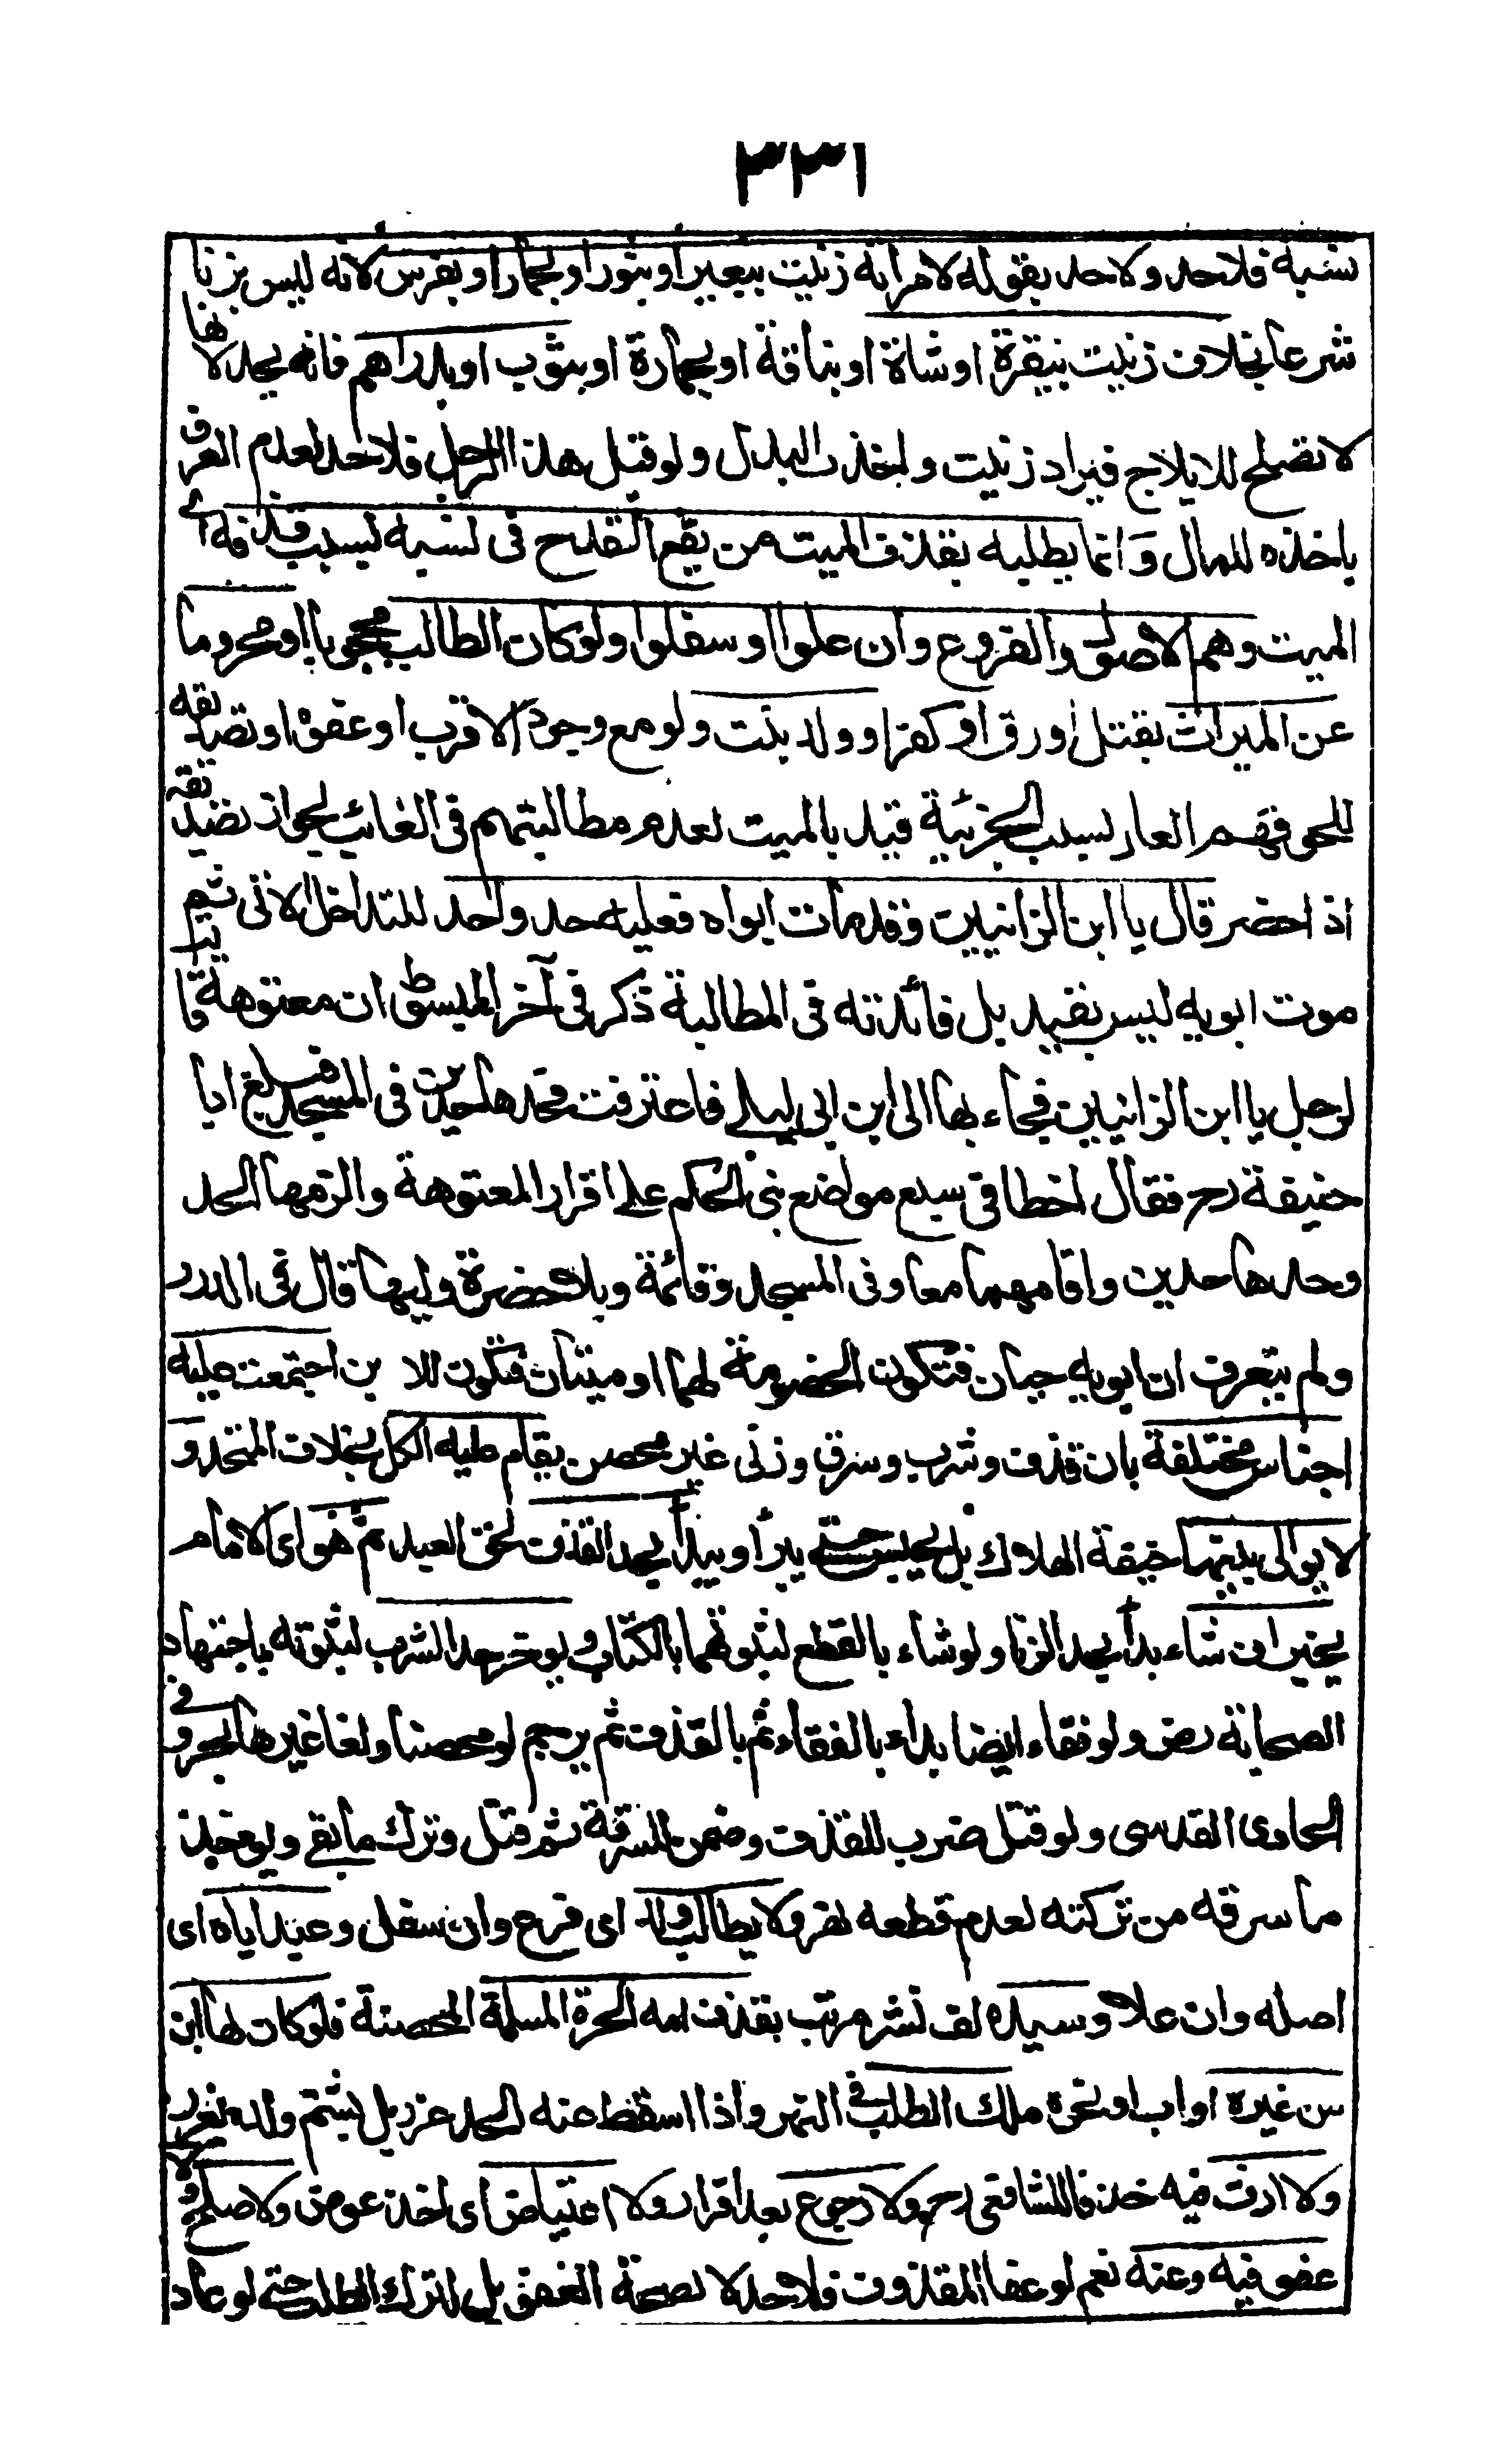 ٣٣١
شبهة فلا حد ولا حد بقوله لامرأته زنيت ببعير او بثور او بحمار او بفرس لانه ليس بزنا
شرعا بخلاف زنيت ببقرة او شاة او بناقة او بحمارة او بثوب او بدراهم فانه يحد لانها
لا تصلح للايلاج فيراد زنيت واخذت البدل ولو قيل هذا للرجل فلا حد لعدم العرف
باخذه للمال وانما يطلبه بقذف الميت من يقع القدح فى نسبه بسبب قذفه اى
الميت وهم الاصول والفروع وان علوا او سفلوا ولو كان الطالب محجوبا او محروما
عن الميراث بقتل او رق او كفر او ولد بنت ولو مع وجود الاقرب او عفوه او تصديقه
للحوقهم العار بسبب الجزئية قيد بالميت لعدم مطالبتهم فى الغائب لجواز تصديقه
اذا حضر قال يا ابن الزانيين وقد مات ابواه فعليه حد واحد للتداخل الاتى ثم
موت ابويه ليس بقيد بل فائدته فى المطالبة ذكر فى آخر المبسوط ان معتوهة قا
لرجل يا ابن الزانيين فجاء بها الى ابن ابى ليلى فاعترفت فحدها حدين فى المسجد فبلغ ابا
حنيفة رح فقال اخطا فى سبع مواضع بنى الحكم على اقرار المعتوهة والزمها الحد
وحدها حدين واقامهما معا وفى المسجد وقائمة وبلا حضرة وليها قال فى الدرر
ولم يتعرف ان ابويه حيان فتكون الخصومة لهما او ميتان فتكون للابن اجتمعت عليه
اجناس مختلفة بان قذف وشرب وسرق وزنى غير محصن يقام عليه الكل بخلاف المتحد و
لا يوالى بينها خيفة الهلاك بل يحبس حتى يبرأ ويبدأ بحد القذف لحق العبد ثم هو اى الامام
يخير ان شاء بدأ بحد الزنا ولو شاء بالقطع لثبوتهما بالكتاب ويؤخر حد الشرب لثبوته باجتهاد
الصحابة رض ولو فقاء ايضا بداء بالفقاء ثم بالقذف ثم يرجم لو محصنا ولغا غيرها بحر وفى
الحاوى القدسى ولو قتل ضرب للقذف وضمن للسرقة ثم قتل وترك ما بقى ويوخذ
ما سرقه من تركته لعدم قطعه نهر ولا يطالب ولد اى فرع وان سفل وعبد اباه اى
اصله وان علا وسيده لف نشر مرتب بقذف امه الحرة المسلمة المحصنة فلو كان لها ابن
من غيره او اب او نحوه ملك الطلب فى النهر واذا اسقط عنه الحد عزر بل بشتم ولده يعزر
ولا ارث فيه خلافا للشافعى رح ولا رجوع بعد اقرار ولا اعتياض اى اخذ عوض ولا صلح ولا
عفو فيه وعنه نعم لو عفا المقذوف فلا حد لا لصحة العفو بل لترك الطلب حتى لو عاد